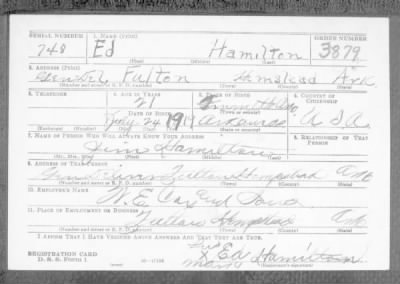 SERIAL NUMBER 1. NAME (Print) ORDER NUMBER
748 Ed Hamilton 3879
(First) (Middle) (Last)
2. ADDRESS (Print)
Fulton Hempstead Ark
(Number and street or R. F. D. number) (Town) (County) (State)
3. TELEPHONE 4. AGE IN YEARS 5. PLACE OF BIRTH 6. COUNTRY OF CITIZENSHIP
21
DATE OF BIRTH (Town or county)
July 24 1919 Arkansas U.S.A.
(Exchange) (Number) (Mo.) (Day) (Yr.) (State or country)
7. NAME OF PERSON WHO WILL ALWAYS KNOW YOUR ADDRESS 8. RELATIONSHIP OF THAT PERSON
Jim Hamilton
(Mr., Mrs., Miss) (First) (Middle) (Last)
9. ADDRESS OF THAT PERSON
Fulton Hempstead Ark
(Number and street or R. F. D. number) (Town) (County) (State)
10. EMPLOYER'S NAME
W. E.
11. PLACE OF EMPLOYMENT OR BUSINESS
Fulton Hempstead Ark
(Number and street or R. F. D. number) (Town) (County) (State)
I AFFIRM THAT I HAVE VERIFIED ABOVE ANSWERS AND THAT THEY ARE TRUE.
REGISTRATION CARD
D. S. S. Form 1
his
X Ed Hamilton
mark
(Registrant's signature)